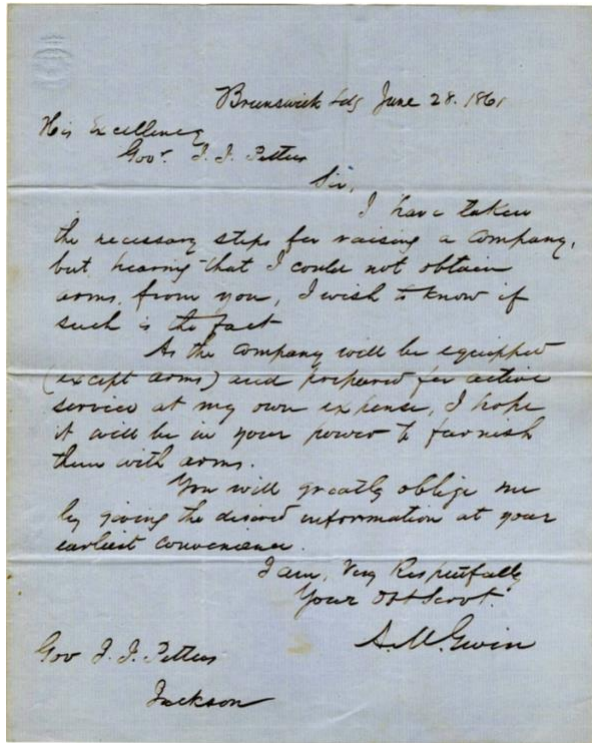 Brunswick Ldg June 28. 1861
His Excellency
Gov. J. J. Pettus
Sir,
I have taken
the necessary steps for raising a company,
but, hearing that I could not obtain
arms, from you, I wish to know if
such is the fact
As the company will be equipped
(except arms) and prepared for active
service at my own expense, I hope
it will be in your power to furnish
them with arms.
You will greatly oblige me
by giving the desired information at your
earliest convenience.
I am, Very Respectfully
Your Obt Servt.
Gwin
Gov J. J. Pettus
Jackson